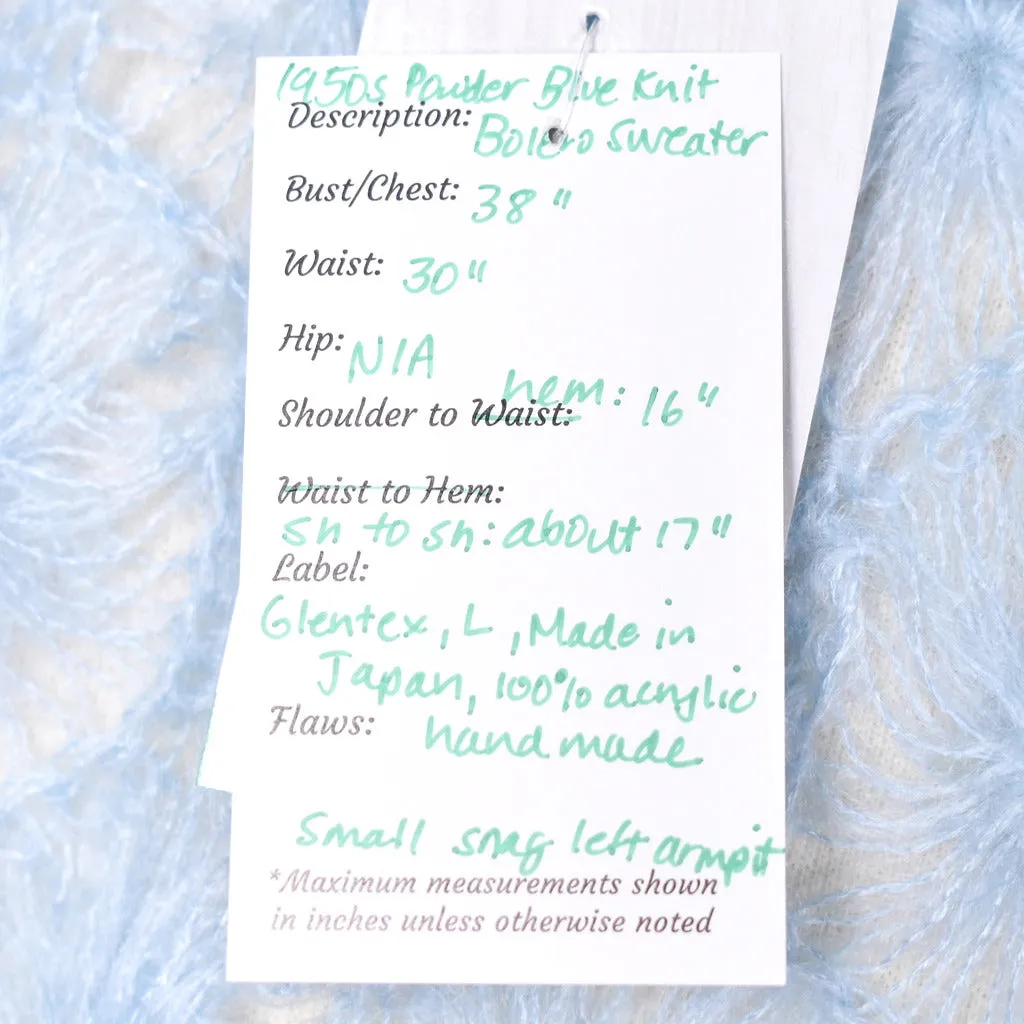 1950s Powder Blue Knit
Description: Bolero Sweater
Bust/Chest: 38"
Waist: 30"
Hip: N/A
hem: 16"
Shoulder to Waist:
Waist to Hem:
sh to sh: about 17"
Label:
Glentex, L, Made in
Japan, 100% acrylic
Flaws: hand made
Small snag left armpit
*Maximum measurements shown
in inches unless otherwise noted